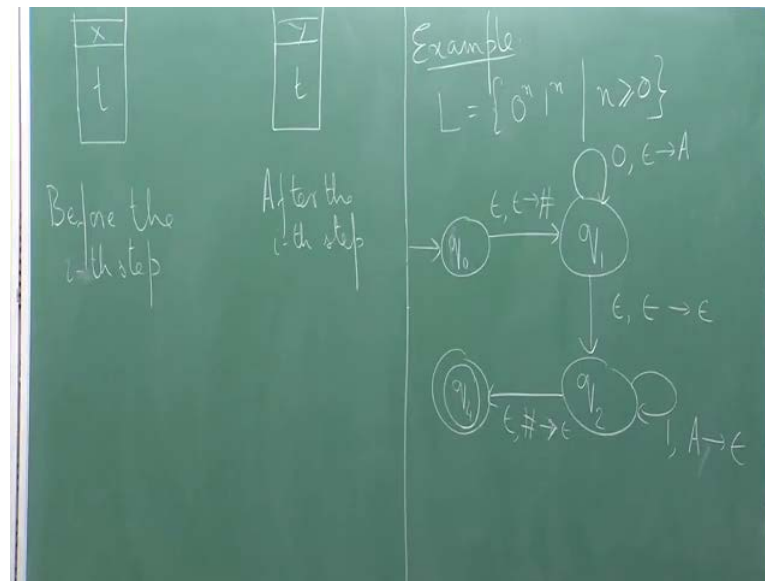 x
t
Before the
i-th step
y
t
After the
i-th step
Example
L = {0ⁿ 1ⁿ | n ≥ 0}
0, ε → A
ε, ε → #
q₀
q₁
ε, ε → ε
q₂
ε, # → ε
1, A → ε